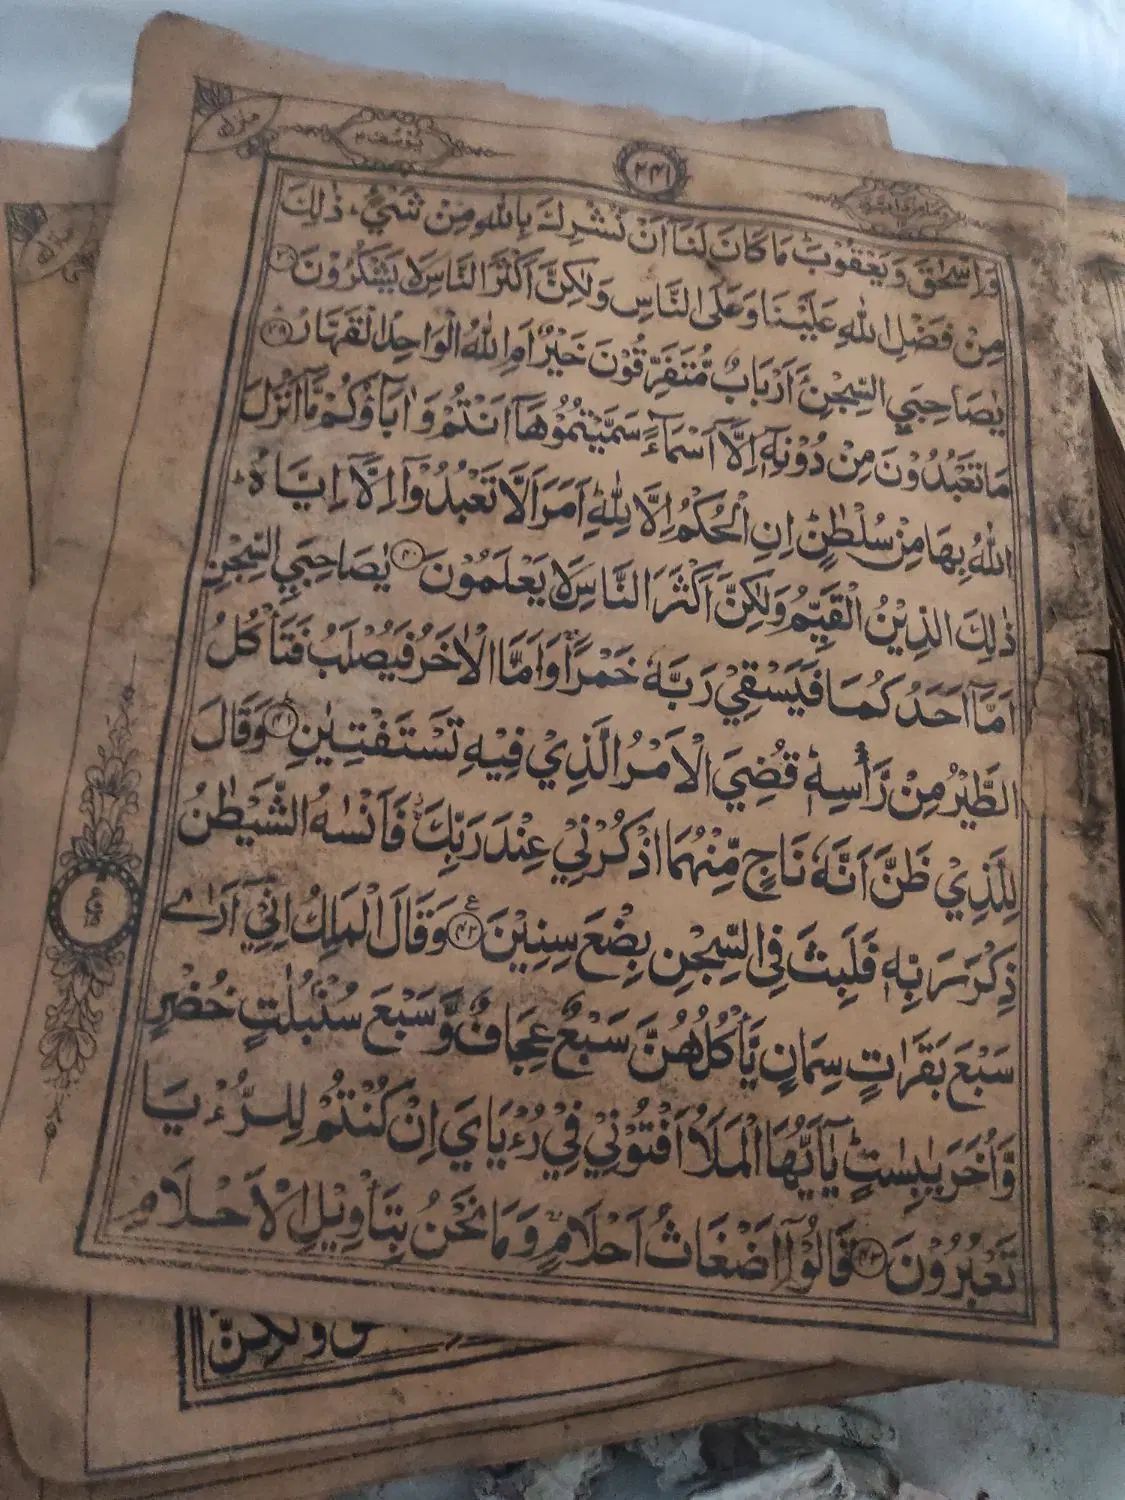 يوسف
٢٤١
وَاِسْحٰقَ وَيَعْقُوْبَ ؕ مَا كَانَ لَنَاۤ اَنْ نُّشْرِكَ بِاللّٰهِ مِنْ شَىْءٍ ؕ ذٰلِكَ
مِنْ فَضْلِ اللّٰهِ عَلَيْنَا وَعَلَى النَّاسِ وَلٰكِنَّ اَكْثَرَ النَّاسِ لَا يَشْكُرُوْنَ
يٰصَاحِبَيِ السِّجْنِ ءَاَرْبَابٌ مُّتَفَرِّقُوْنَ خَيْرٌ اَمِ اللّٰهُ الْوَاحِدُ الْقَهَّارُ ﴿٣٩﴾
مَا تَعْبُدُوْنَ مِنْ دُوْنِهٖۤ اِلَّاۤ اَسْمَآءً سَمَّيْتُمُوْهَاۤ اَنْتُمْ وَاٰبَآؤُكُمْ مَّاۤ اَنْزَلَ
اللّٰهُ بِهَا مِنْ سُلْطٰنٍ ؕ اِنِ الْحُكْمُ اِلَّا لِلّٰهِ ؕ اَمَرَ اَلَّا تَعْبُدُوْۤا اِلَّاۤ اِيَّاهُ ؕ
ذٰلِكَ الدِّيْنُ الْقَيِّمُ وَلٰكِنَّ اَكْثَرَ النَّاسِ لَا يَعْلَمُوْنَ ﴿٤٠﴾ يٰصَاحِبَيِ السِّجْنِ
اَمَّاۤ اَحَدُكُمَا فَيَسْقِيْ رَبَّهٗ خَمْرًا ۚ وَاَمَّا الْاٰخَرُ فَيُصْلَبُ فَتَاْكُلُ
الطَّيْرُ مِنْ رَّاْسِهٖ ؕ قُضِيَ الْاَمْرُ الَّذِيْ فِيْهِ تَسْتَفْتِيٰنِ ﴿٤١﴾ وَقَالَ
لِلَّذِيْ ظَنَّ اَنَّهٗ نَاجٍ مِّنْهُمَا اذْكُرْنِيْ عِنْدَ رَبِّكَ ۫ فَاَنْسٰىهُ الشَّيْطٰنُ
ذِكْرَ رَبِّهٖ فَلَبِثَ فِى السِّجْنِ بِضْعَ سِنِيْنَ ﴿٤٢﴾ ع وَقَالَ الْمَلِكُ اِنِّيْۤ اَرٰى
سَبْعَ بَقَرٰتٍ سِمَانٍ يَّاْكُلُهُنَّ سَبْعٌ عِجَافٌ وَّسَبْعَ سُنْۢبُلٰتٍ خُضْرٍ
وَّاُخَرَ يٰبِسٰتٍ ؕ يٰۤاَيُّهَا الْمَلَاُ اَفْتُوْنِيْ فِيْ رُءْيَايَ اِنْ كُنْتُمْ لِلرُّءْيَا
تَعْبُرُوْنَ ﴿٤٣﴾ قَالُوْۤا اَضْغَاثُ اَحْلَامٍ ۚ وَمَا نَحْنُ بِتَاْوِيْلِ الْاَحْلَامِ
وَلٰكِنَّ